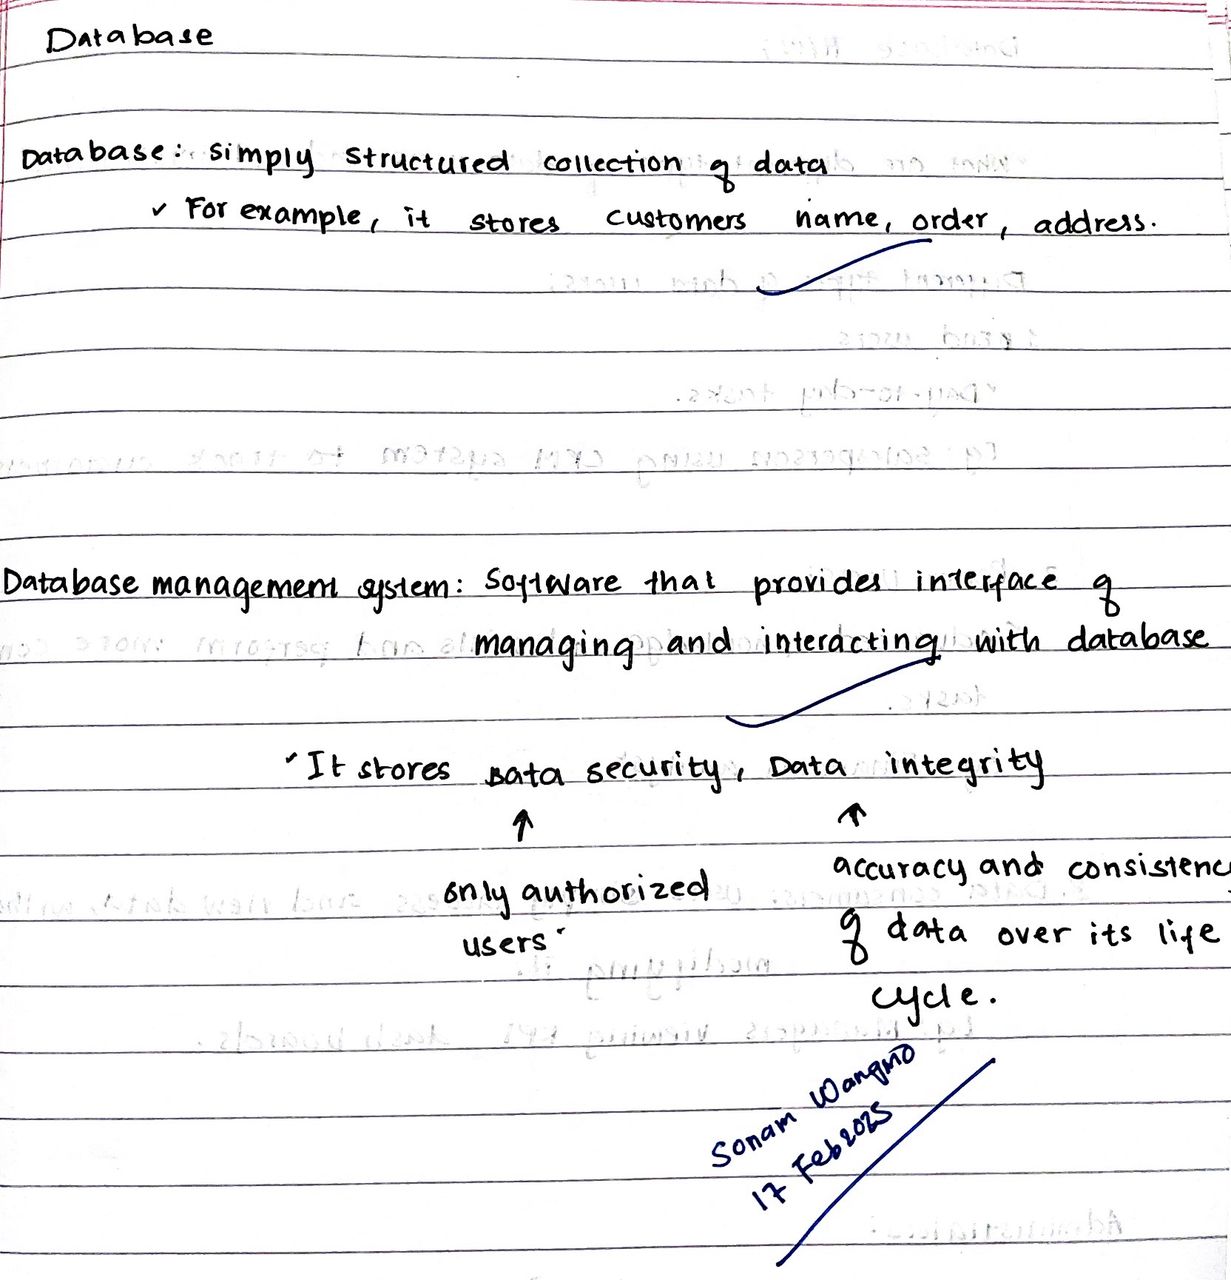 Database
Database: simply structured collection of data
✓ For example, it stores customers name, order, address.
Database management system: Software that provides interface of
managing and interacting with database
It stores Data security, Data integrity
↑ ↑
only authorized
users
accuracy and consistenc
of data over its life
cycle.
Sonam Wangmo
17 Feb 2025